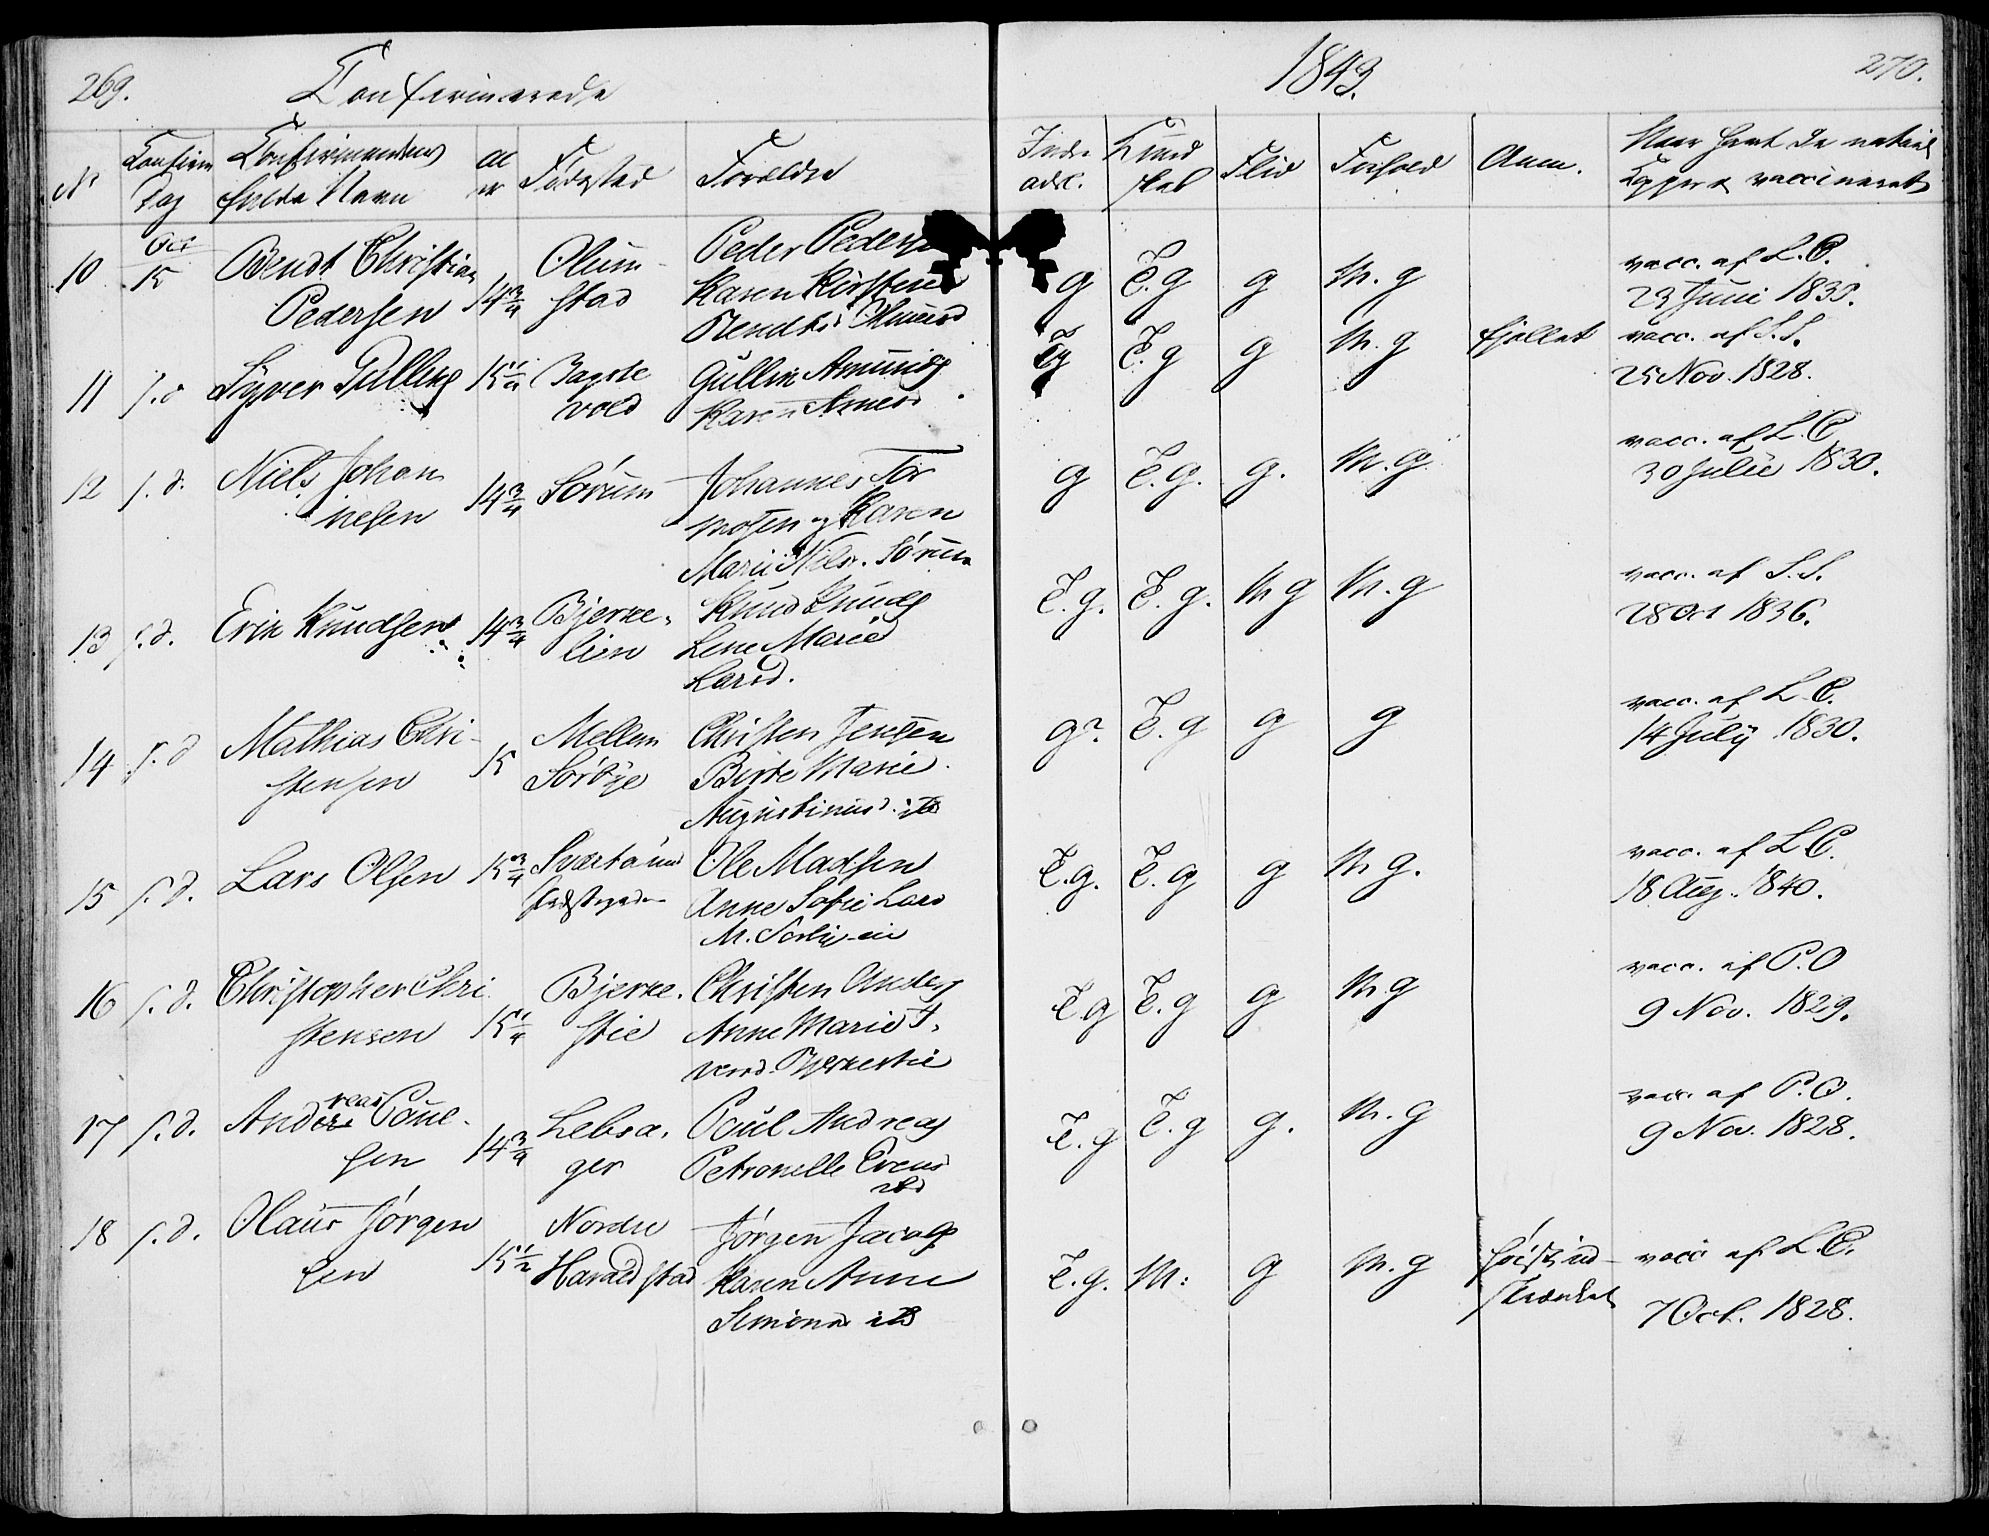 269.
Confirmerede
1843.
270.
No
Confirm
Dag
Confirmandens
fulde Navn
Al
er
Fødested
Forældre
Inde
adsl.
Kund
skab
Flid
Forhold
Anm.
Naar havt de naturl
Kopper el vaccineret
10
Oct
15
Bendt Christian
Pedersen
14 3/4
Olum
stad
Peder Peders
Karen Kirstine
g
T. g
g
M. g
vacc. af L. C.
23 Juni 1830.
11
s. d
Syver Gulling
15 1/4
vold
Gullik Amunds
Karen
Tg
T. g
g
M. g
fjellet
vacc. af S. S.
25 Nov. 1828.
12
s. d.
Niels Johan
nesen
14 3/4
Sørum
Johannes Tor
mosen og Karen
Marie Nilsd. Sørum
g
T. g.
g.
M. g
vacc. af L. C
30 Julii 1830.
13
s. d.
Erik Knudsen
14 3/4
Bjerke
lien
Knud Knuds
Lene Marie
Larsd.
T. g.
T. g.
M g
M. g
vacc. af S. S.
28 Oct 1836.
14
s. d
Mathias Chri-
stensen
15
Mellem
Sørbye
Christen Jensen
Birte Marie
Augustinusd. ibd
g?
T. g
g
g
vacc. af L. C.
14 July 1830.
15
s. d.
Lars Olsen
15 3/4
Ole Madsen
Anne Sofie Lars
T. g.
T. g
g
M g.
vacc. af L C.
18 Aug. 1840.
16
s. d.
Christopher Chri
stensen
15 1/4
Bjerke
stie
Christen Anders
Anne Marie I.
versd. Bjerkestie
T. g
T. g
g
M g
vacc. af P. O
9 Nov. 1829.
17
s. d.
Andreas Poul
sen
14 3/4
Lebsa
ger
Poul Andreas
Petronelle Evens
ibd
T. g
T. g
g.
M. g
vacc. af P. O.
9 Nov. 1828.
18
s. d.
Olaus Jørgen
sen
15 1/2
Nordre
Haraldstad
Jørgen Jacobs
Karen Anne
Simons ibd
T. g.
M:
g
M. g
vacc af L. C.
7 Oct. 1828.